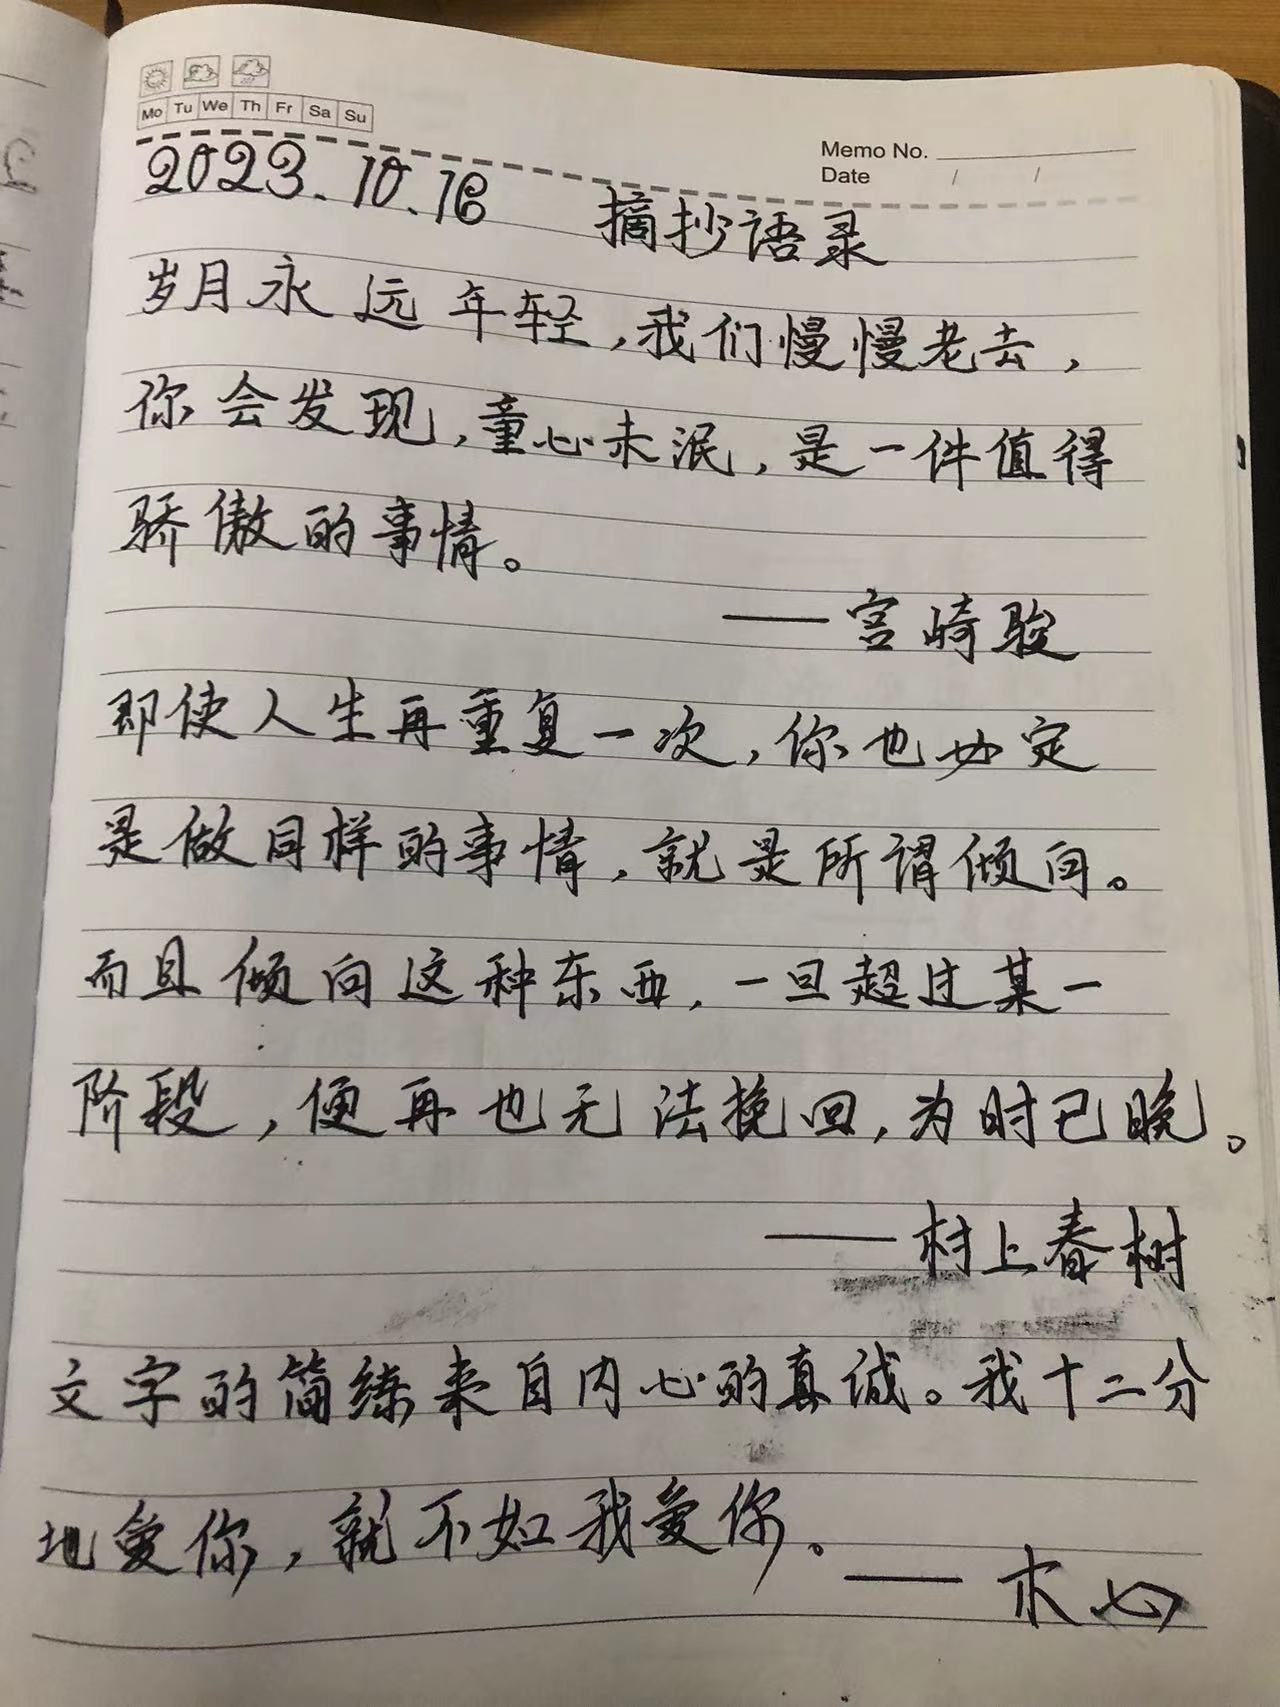 Mo Tu We Th Fr Sa Su
Memo No.
Date / /
2023.10.16 摘抄语录
岁月永远年轻,我们慢慢老去,
你会发现,童心未泯,是一件值得
骄傲的事情。
——宫崎骏
即使人生再重复一次,你也必定
是做同样的事情,就是所谓倾向。
而且倾向这种东西,一旦超过某一
阶段,便再也无法挽回,为时已晚。
——村上春树
文字的简练来自内心的真诚。我十二分
地爱你,就不如我爱你。
——木心